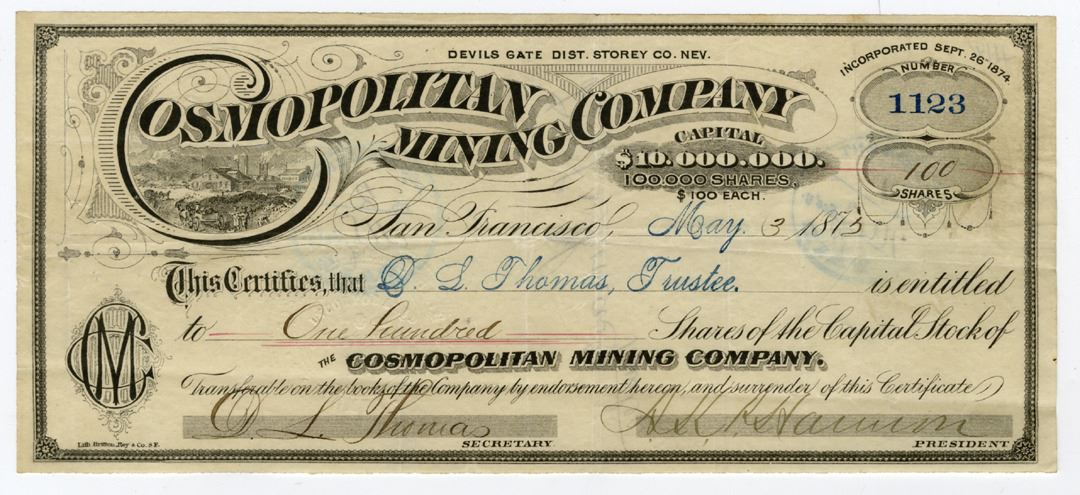 DEVILS GATE DIST. STOREY CO. NEV.
INCORPORATED SEPT. 26 1874
COSMOPOLITAN
MINING COMPANY
NUMBER
1123
CAPITAL
$10.000.000.
100.000 SHARES.
$100 EACH.
100
SHARES
San Francisco, May. 3 1875
This Certifies, that D. L. Thomas, Trustee. is entitled
to One hundred Shares of the Capital Stock of
THE COSMOPOLITAN MINING COMPANY.
Transferable on the books of the Company by endorsement hereon, and surrender of this Certificate
D. L. Thomas
SECRETARY
PRESIDENT
CMC
Lith. Britton, Rey & Co. S.F.